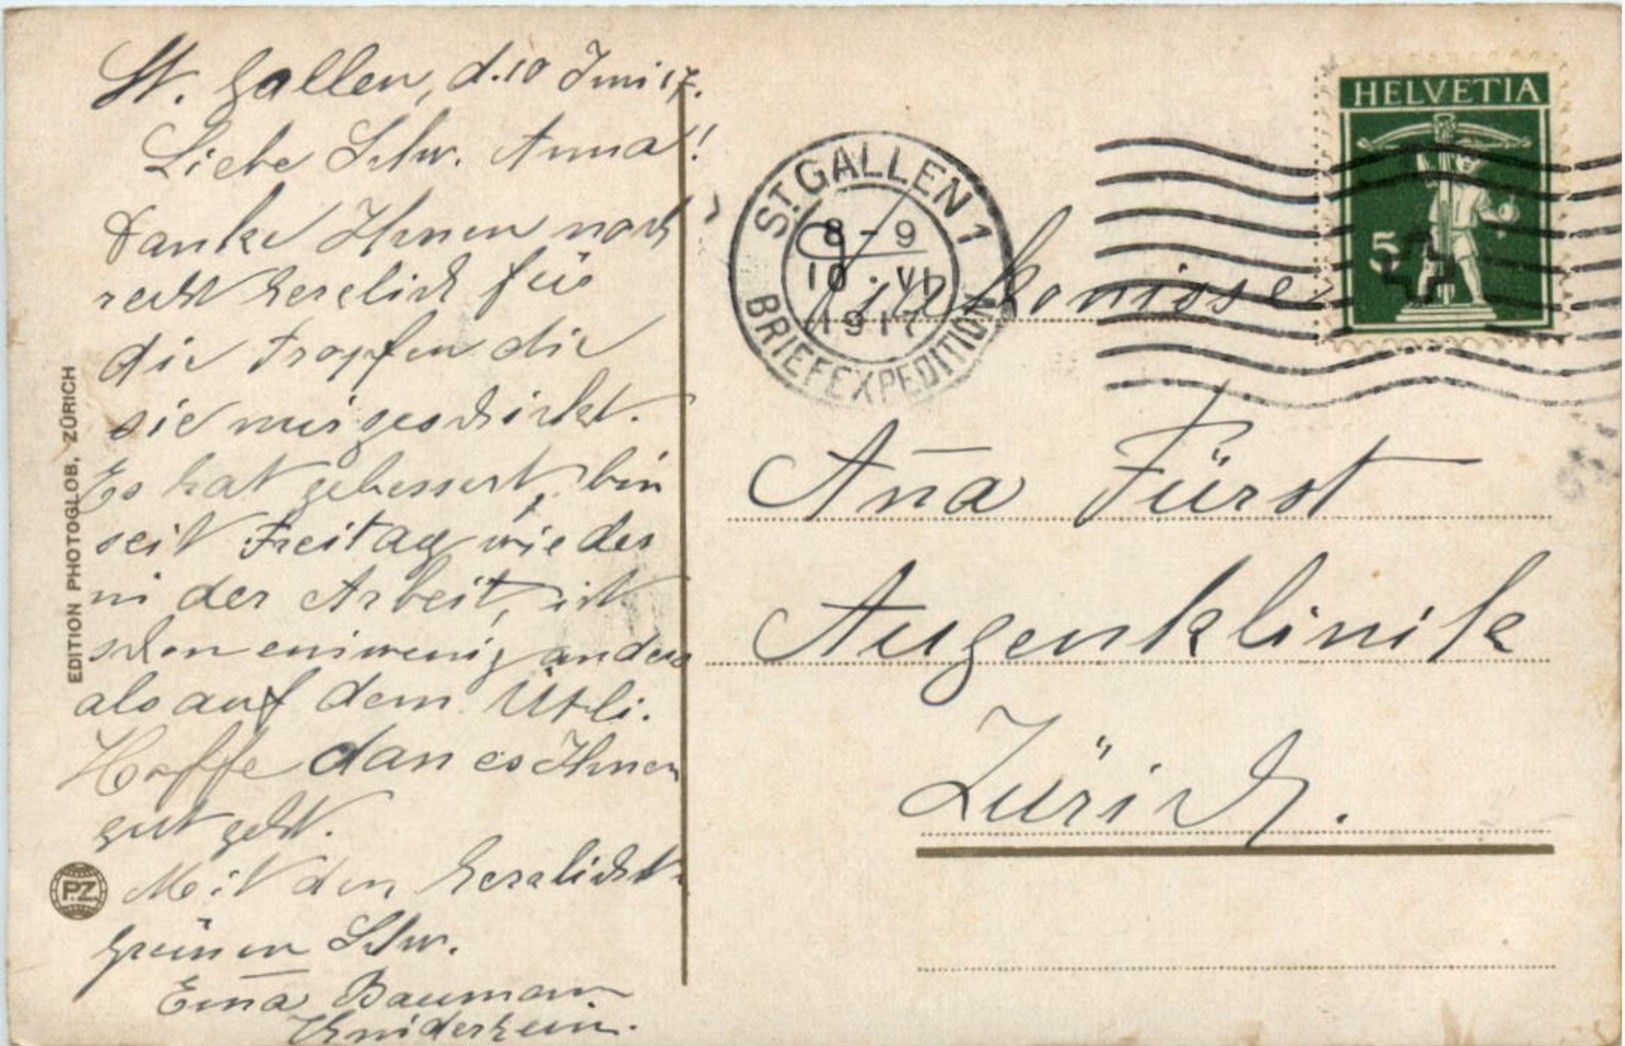 St. Gallen, d. 10 Juni 17.
Liebe Schw. Anna!
Danke Ihnen noch
recht herzlich für
die Tropfen die
sie mir geschickt.
Es hat gebessert, bin
seit Freitag wieder
in der Arbeit, ist
schon ein wenig anders
als auf dem Ütli.
Hoffe dan es Ihnen
gut geht.
Mit den herzlichst.
Grüssen Schw.
Em̄a Bauman
Kinderheim.
EDITION PHOTOGLOB, ZÜRICH
P.Z.
ST. GALLEN 1
8-9
10.VI.
1917
BRIEFEXPEDITION
HELVETIA
5
Diakonisse
An̄a Fürst
Augenklinik
Zürich.